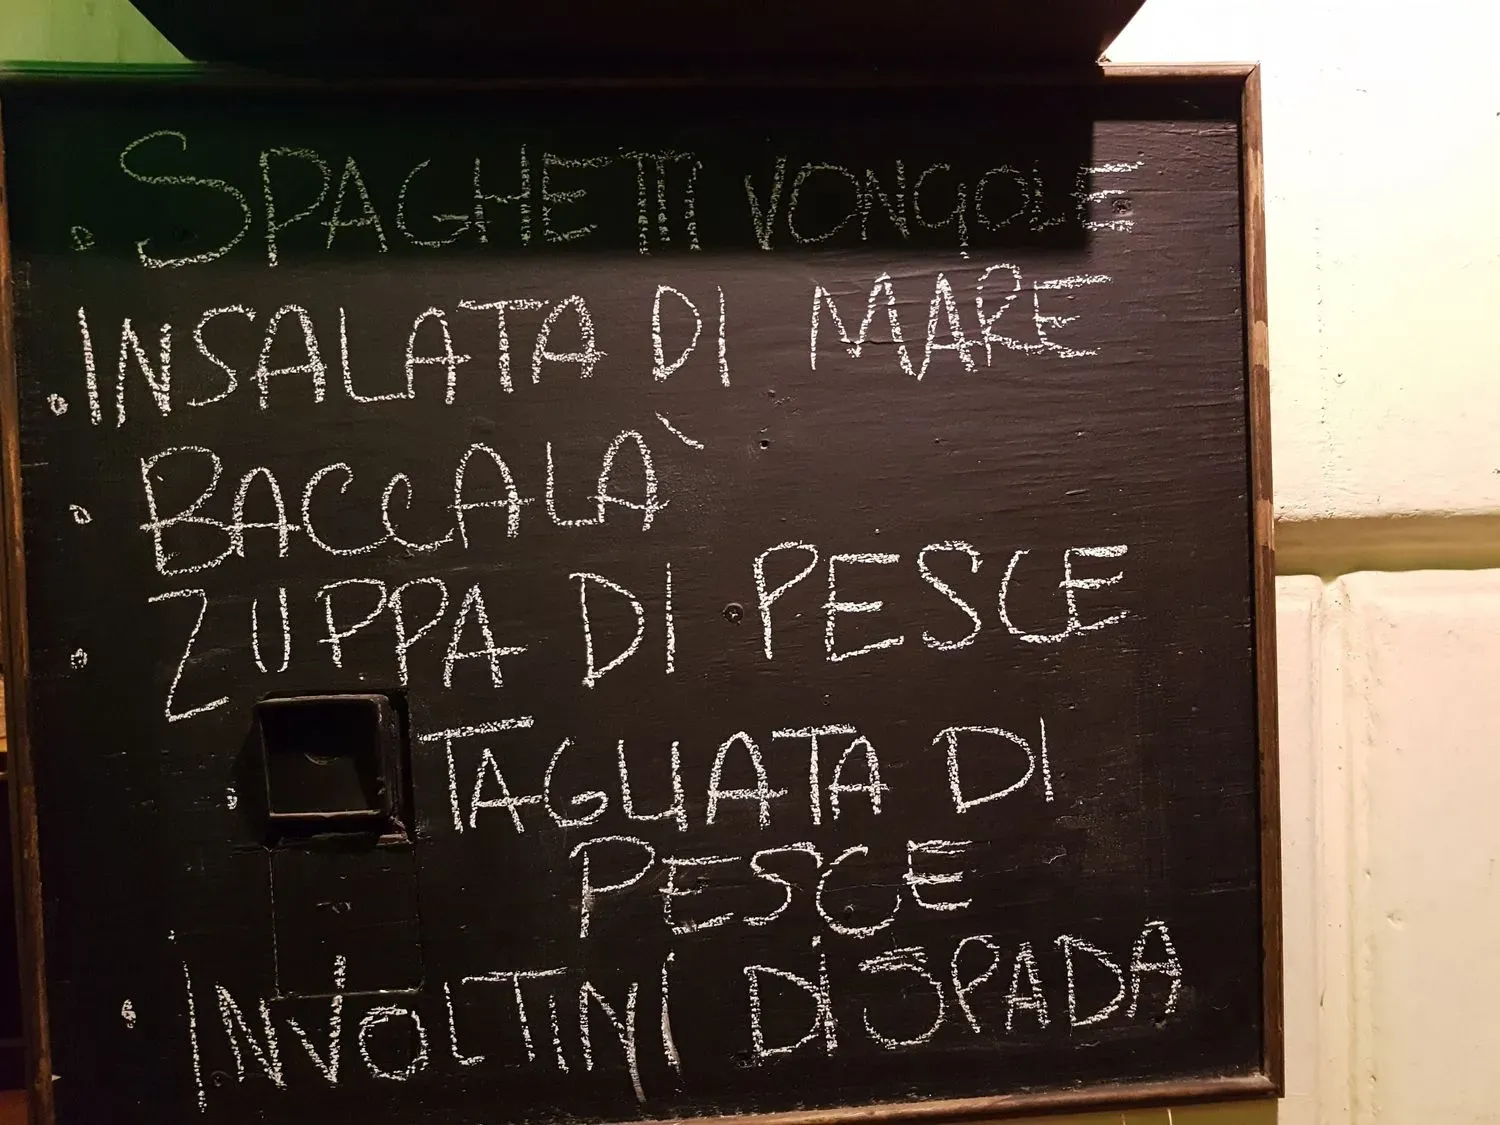 • SPAGHETTI VONGOLE
• INSALATA DI MARE
• BACCALÀ
• ZUPPA DI PESCE
• TAGLIATA DI
PESCE
• INVOLTINI DI SPADA